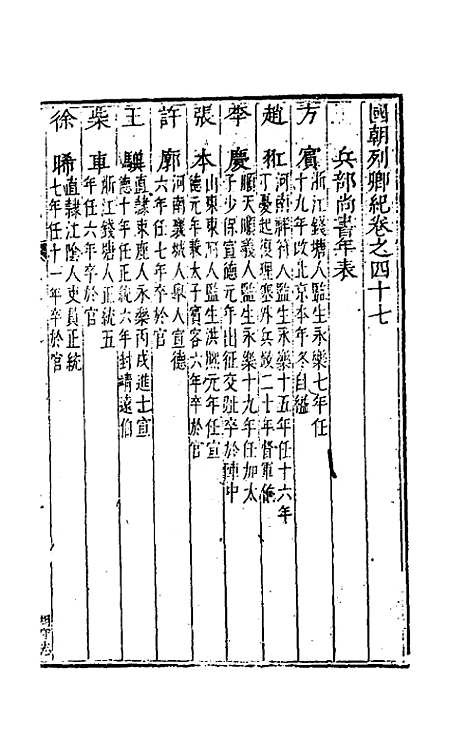 國朝列卿紀卷之四十七
兵部尚書年表
方賓
浙江錢塘人監生永樂七年任
十九年改北京本年冬自縊
趙羾
河南祥符人監生永樂十五年任十六年
丁憂起復理塞外兵民二十年督軍餉
李慶
順天順義人監生永樂十九年任加太
子少保宣德元年出征交趾卒於陣中
張本
山東東阿人監生洪熙元年任宣
德元年兼太子賓客六年卒於官
許廓
河南襄城人舉人宣德
六年任七年卒於官
王驥
直隸束鹿人永樂丙戌進士宣
德十年任正統六年封靖遠伯
柴車
浙江錢塘人正統五
年任六年卒於官
徐晞
直隸江陰人吏員正統
七年任十一年卒於官